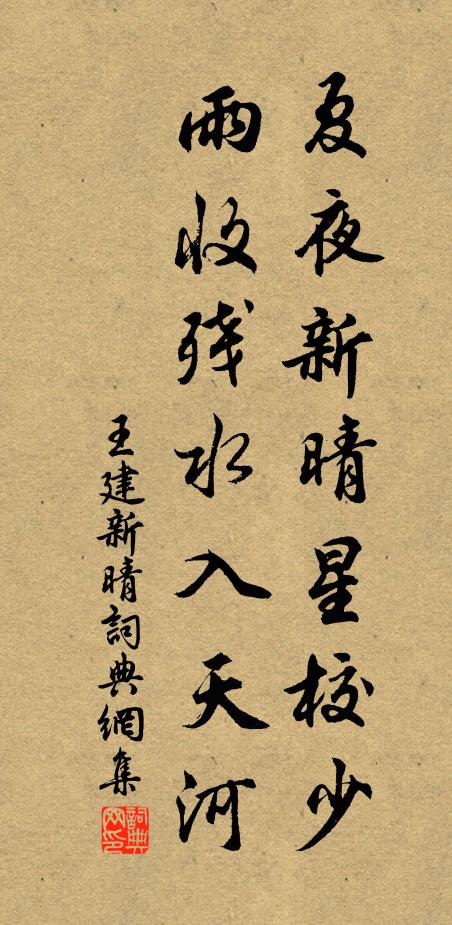 夏夜新晴星校少
雨收残水入天河
王建新晴詞典網集
詞典網印